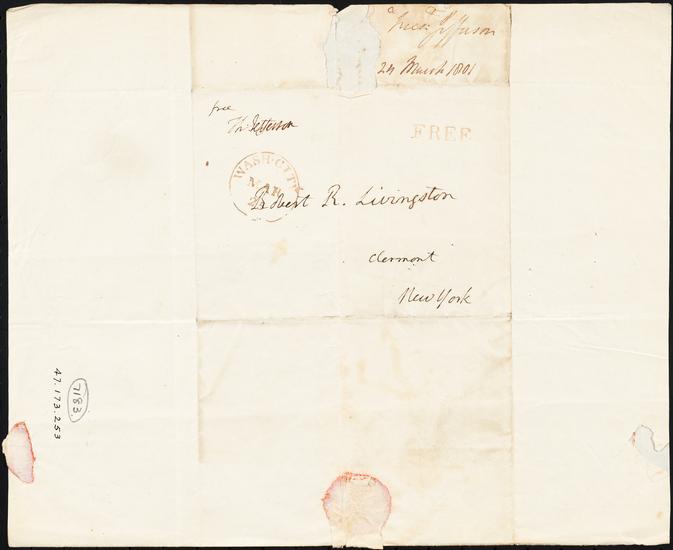 Jefferson
24 March 1801
free
Th: Jefferson
FREE
WASH. CITY
MAR
Robert R. Livingston
Clermont
New York
7183.
47.173.253